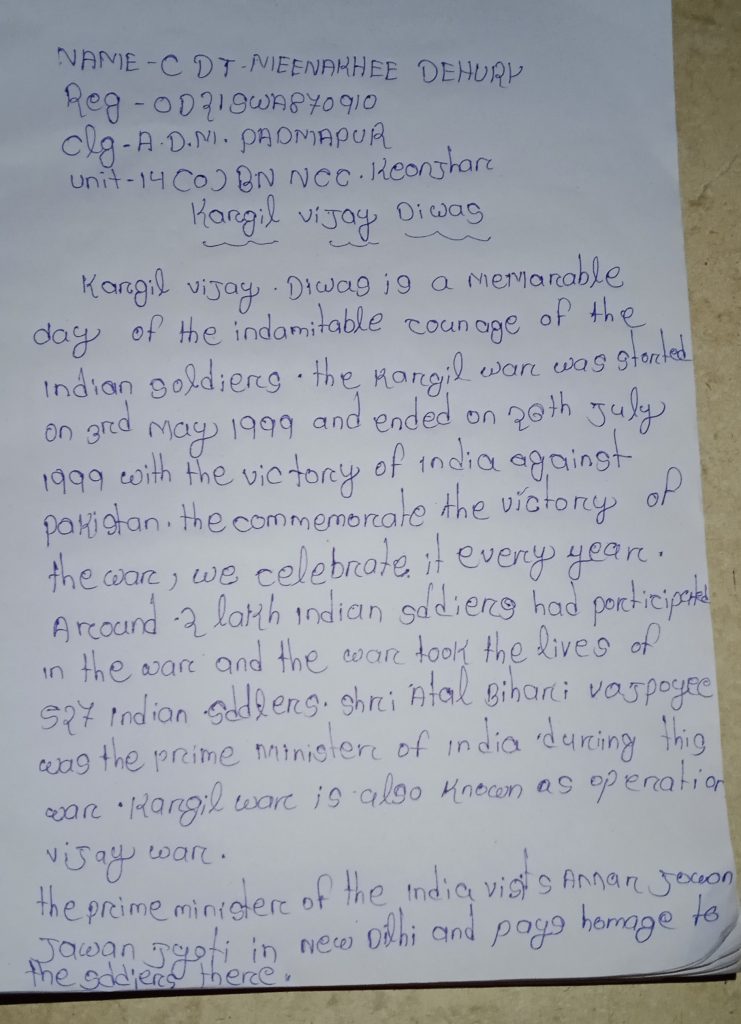 NAME - C DT - MEENAKHEE DEHURY
Reg - OD21SWA870910
Clg - A.D.M. PADMAPUR
unit - 14 (O) BN NCC. Keonjhar
Kargil vijay Diwas
Kargil vijay. Diwas is a Memarable
day of the indamitable counage of the
indian soldiers. the Kargil warc was started
on 3rd may 1999 and ended on 26th July
1999 with the victorcy of india against
pakistan. the commemorcate the victory of
the warc, we celebrate it every yearc.
Arcound 2 lakh indian soldiers had porticipated
in the warc and the warc took the lives of
527 indian soldiers. shri Atal Bihari vajpayee
was the prcime ministerc of india during this
warc. Kargil warc is also known as operation
vijay warc.
the prcime ministerc of the india visits Annar
Jawan Jyoti in New Dilhi and pays homage to
the soldiers there.